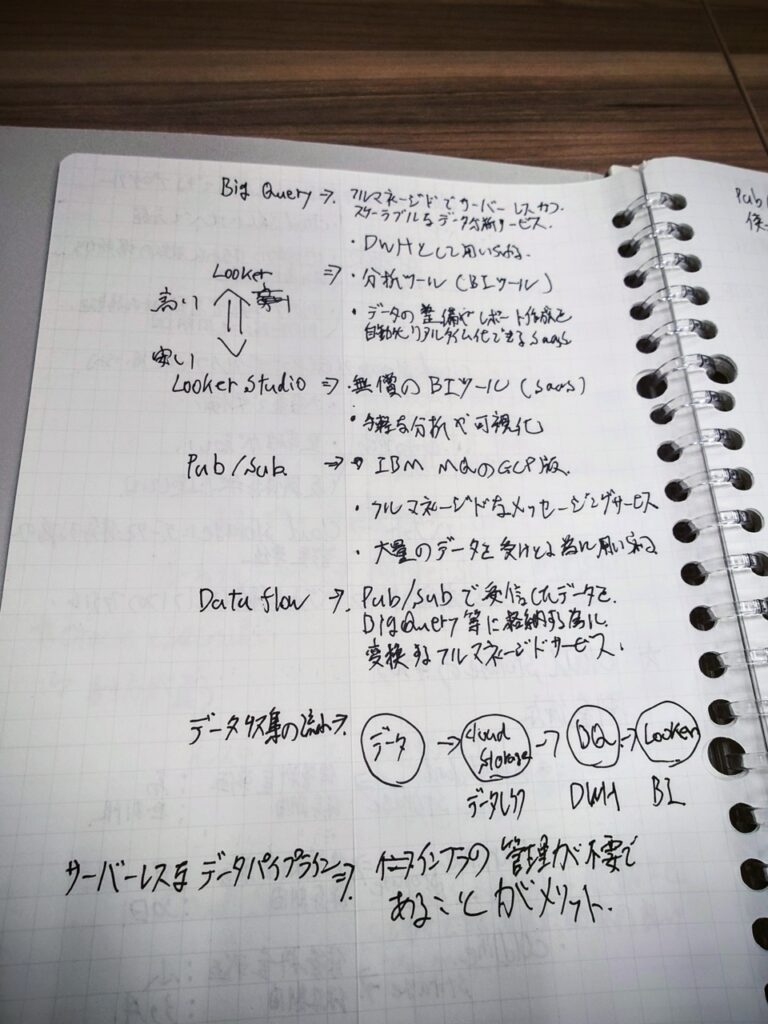 Big Query ⇒ フルマネージドでサーバーレスかつ
スケーラブルなデータ分析サービス.
・DWHとして用いられる.
Looker ⇒ ・分析ツール (BIツール)
高い
・データの整備やレポート作成を
自動化リアルタイム化できるSaaS
安い
Looker Studio ⇒ ・無償のBIツール (SaaS)
・手軽な分析や可視化
Pub/Sub. ⇒ IBM MQのGCP版.
・フルマネージドなメッセージングサービス
・大量のデータを受けとる為に用いられる
Data flow ⇒ Pub/Subで受信したデータを.
BigQuery等に格納する為に.
変換するフルマネージドサービス.
データ収集の流れ⇒ データ → Cloud Storage → BQ → Looker
データレイク DWH BI
サーバーレスなデータパイプライン⇒ インフラの管理が不要で
あることがメリット.
Pub/